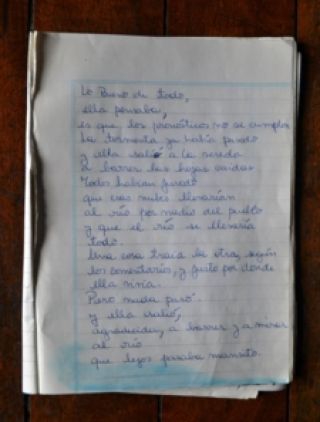 Lo Bueno de todo,
ella pensaba,
es que los pronósticos no se cumplen
La tormenta ya había pasado
y ella salió a la vereda
a barrer las hojas caídas
Todos habían jurado
que esas nubes llevarían
al río por medio del pueblo
y que el río se llevaría
todo.
Una cosa traía la otra, según
los comentarios, y justo por donde
ella vivía.
Pero nada pasó.
y ella salió,
agradecida, a barrer y a mirar
al río
que lejos pasaba mansito.